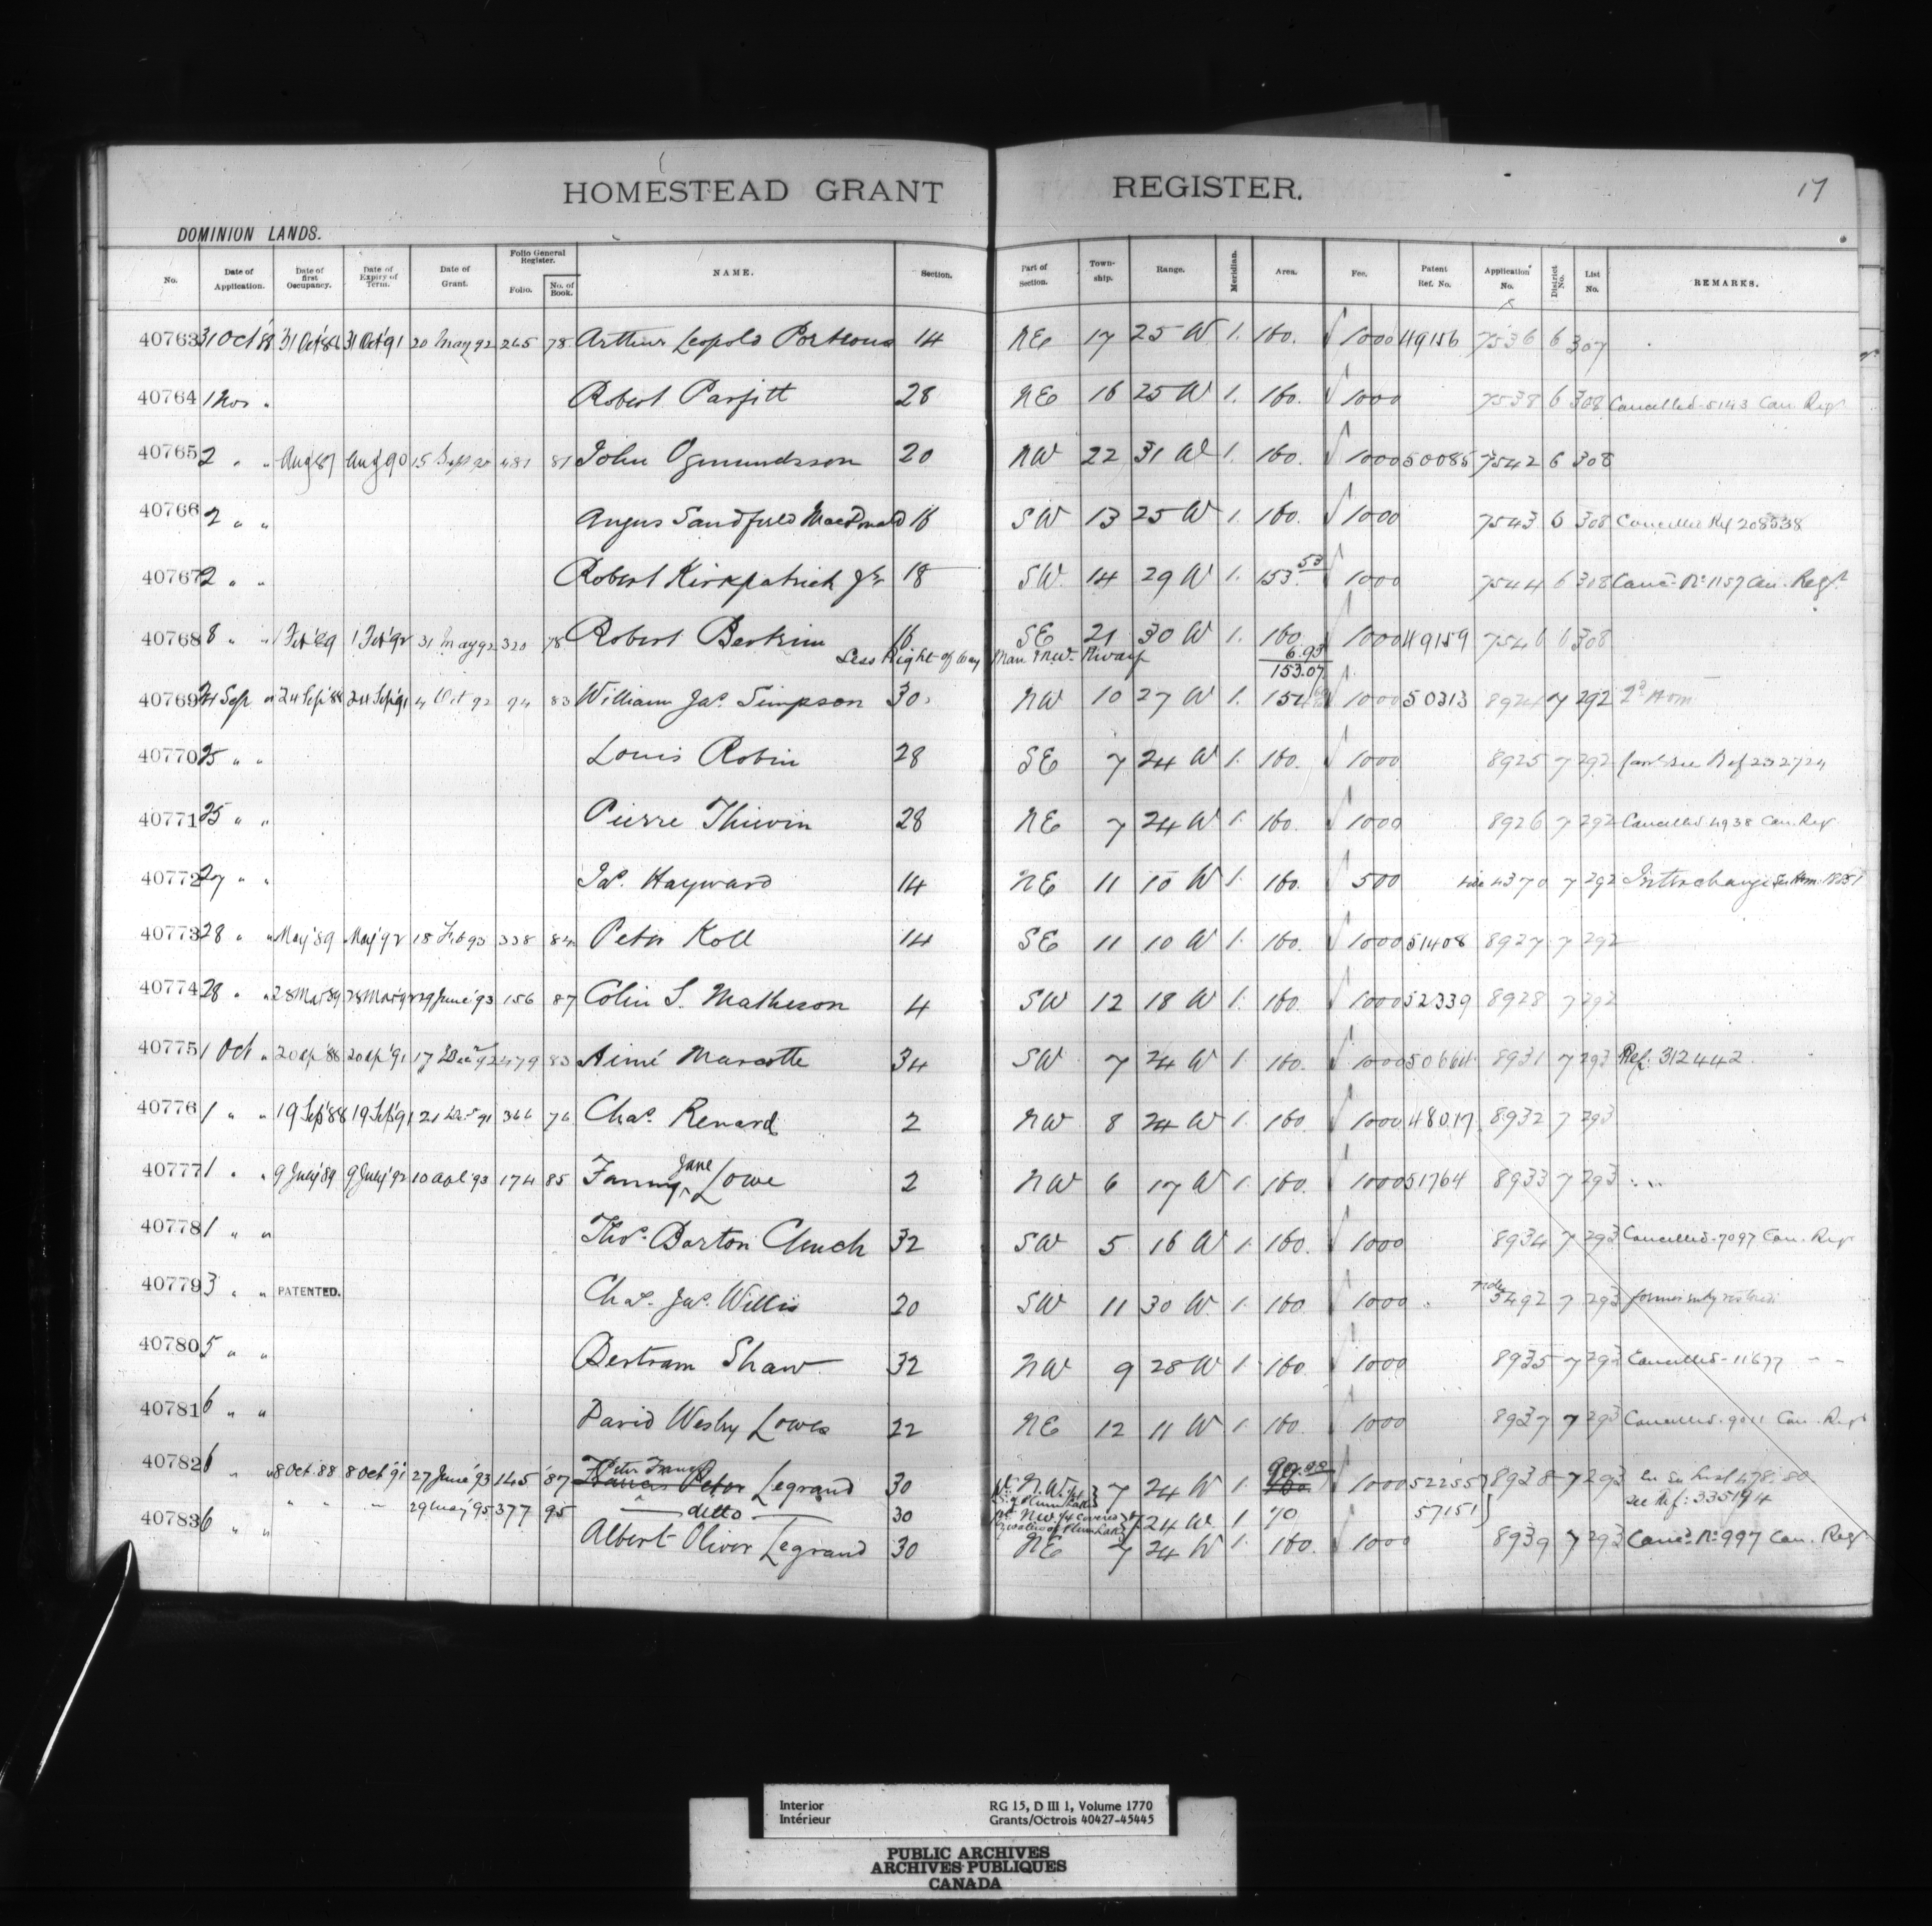 17
HOMESTEAD GRANT REGISTER.
DOMINION LANDS.
No. Date of Application. Date of first Occupancy. Date of Expiry of Term. Date of Grant. Folio General Register. Folio. No. of Book. NAME. Section. Part of Section. Town-ship. Range. Meridian. Area. Fee. Patent Ref. No. Application No. District No. List No. REMARKS.
40763 31 Oct '88 31 Oct '88 31 Oct '91 20 May 92 265 78 Arthur Leopold Porteous 14 NE 17 25 W 1. 160. √ 1000 49156 7536 6 307
40764 1 Nov " Robert Parfitt 28 NE 16 25 W 1. 160. √ 1000 7538 6 308 Cancelled 5143 Can. Regr
40765 2 " " Aug 87 Aug 90 15 Sept 92 481 81 John Ogmundsson 20 NW 22 31 W 1. 160. √ 1000 50085 7542 6 308
40766 2 " " Angus Sandfield MacDonald 16 SW 13 25 W 1. 160. √ 1000 7543 6 308 Cancelled Ref 208538
40767 2 " " Robert Kirkpatrick Jr 18 SW 14 29 W 1. 153.53 √ 1000 7544 6 308 Canc. No 1157 Can. Regr
40768 8 " " 1 Feb '89 1 Feb '92 31 May 92 320 78 Robert Bertrim 16 SE 21 30 W 1. 160. √ 1000 49159 7546 6 308
Less Right-of-Way Man & NW. Rlway 6.93
153.07
40769 24 Sep " 24 Sep '88 24 Sep '91 4 Oct 92 94 83 William Jas. Simpson 30 NW 10 27 W 1. 154 √ 1000 50313 8924 7 292 2d Hom
40770 25 " " Louis Robin 28 SE 7 24 W 1. 160. √ 1000 8925 7 292 see Ref 232724
40771 25 " " Pierre Thievin 28 NE 7 24 W 1. 160. √ 1000 8926 7 292 Cancelled 4938 Can. Regr
40772 27 " " Jas. Hayward 14 NE 11 10 W 1. 160. √ 500 4370 7 292 Interchange
40773 28 " " May '89 May '92 18 Feb 93 338 84 Peter Koll 14 SE 11 10 W 1. 160. √ 1000 51408 8927 7 292
40774 28 " " 28 Mar 89 28 Mar '92 29 June '93 156 87 Colin S. Matheson 4 SW 12 18 W 1. 160. √ 1000 52339 8928 7 292
40775 1 Oct " 20 Ap '88 20 Ap '91 17 Dec 92 479 83 Aimé Marcotte 34 SW 7 24 W 1. 160. √ 1000 50664 8931 7 293 Ref. 312442
40776 1 " " 19 Sep '88 19 Sep '91 21 Dec 91 366 76 Chas. Renard 2 NW 8 24 W 1. 160. √ 1000 48017 8932 7 293
40777 1 " " 9 July '89 9 July '92 10 Apl '93 174 85 Fanny Jane Lowe 2 NW 6 17 W 1. 160. √ 1000 51764 8933 7 293
40778 1 " " Thos. Barton Cluech 32 SW 5 16 W 1. 160. √ 1000 8934 7 293 Cancelled 7097 Can. Regr
40779 3 " " PATENTED. Chas. Jas. Willis 20 SW 11 30 W. 1. 160. √ 1000 5492 7 293 former entry restored
40780 5 " " Bertram Shaw 32 NW 9 28 W 1. 160. √ 1000 8935 7 293 Cancelled 11677 " "
40781 6 " " David Wesley Lowes 22 NE 12 11 W 1. 160. √ 1000 8937 7 293 Cancelled 9011 Can. Regr
40782 6 " " 8 Oct '88 8 Oct '91 27 June '93 145 87 Peter Francis Francis Peter Legrand 30 N.W. 7 24 W 1. 160 1000 52255 8938 7 293
" " " 29 May '95 377 95 ditto 30 NW 1/4 covered 7 24 W. 1 70 57151 See Ref: 335194
40783 6 " " Albert Oliver Legrand 30 NE 7 24 W 1. 160. √ 1000 8939 7 293 Canc. No 997 Can. Regr
Interior RG 15, D III 1, Volume 1770
Intérieur Grants/Octrois 40427-45445
PUBLIC ARCHIVES
ARCHIVES PUBLIQUES
CANADA